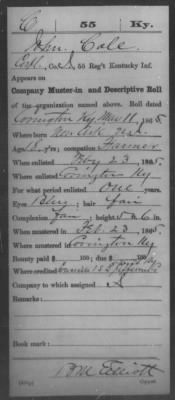 C | 55 | Ky.
John Cole
Co. , 55 Reg't Kentucky Inf.
Appears on
Company Muster-in and Descriptive Roll
of the organization named above. Roll dated
Covington Ky Mar 11, 1865.
Where born
Age y'rs; occupation Farmer
When enlisted Feby 23, 1865.
Where enlisted Covington Ky
For what period enlisted one years.
Eyes Blue; hair fair
Complexion fair; height 5 ft. 6 in.
When mustered in Feb. 23, 1865.
Where mustered in Covington Ky
Bounty paid $ 100; due $ 100
Where credited
Company to which assigned
Remarks:
Book mark:
Elliott
Copyist.